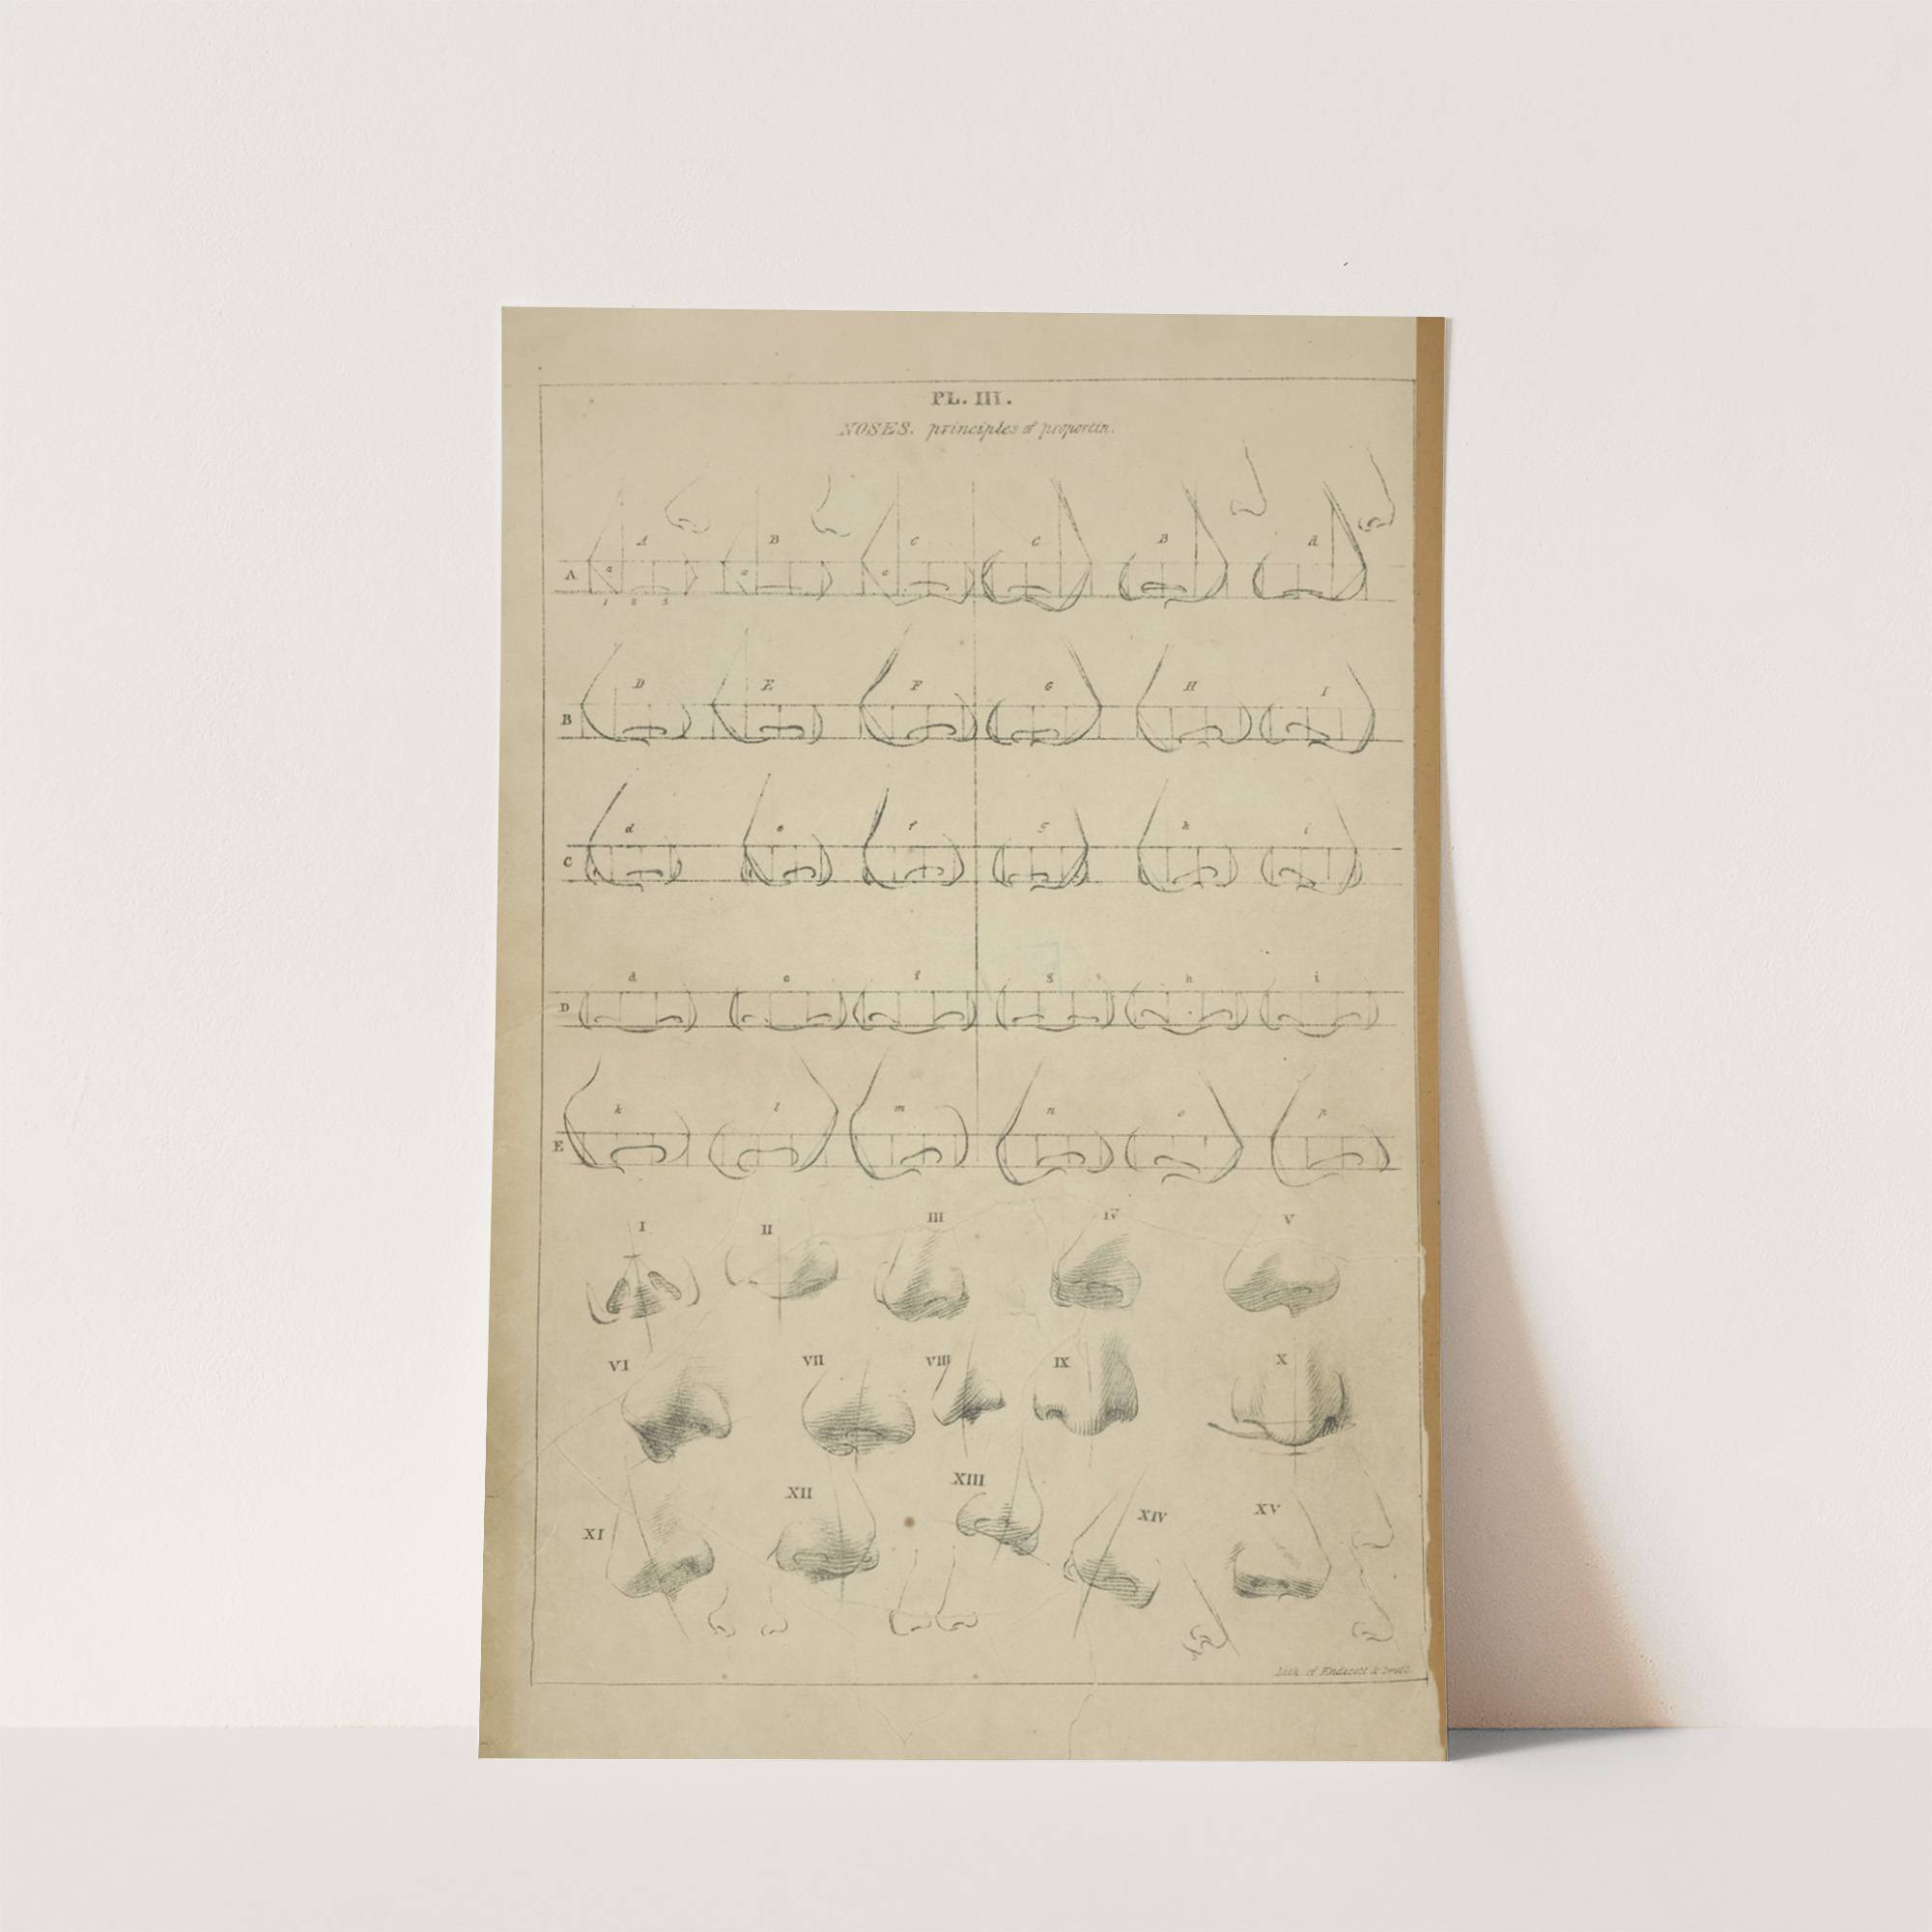 PL. III.
NOSES. principles of proportin.
A B C C B A
A a a c
1 2 3
D E F G H I
B
d e f g h i
C
d e f g h i
D
k l m n o p
E
I II III IV V
VI VII VIII IX X
XI XII XIII XIV XV
Lith. of Endicott &